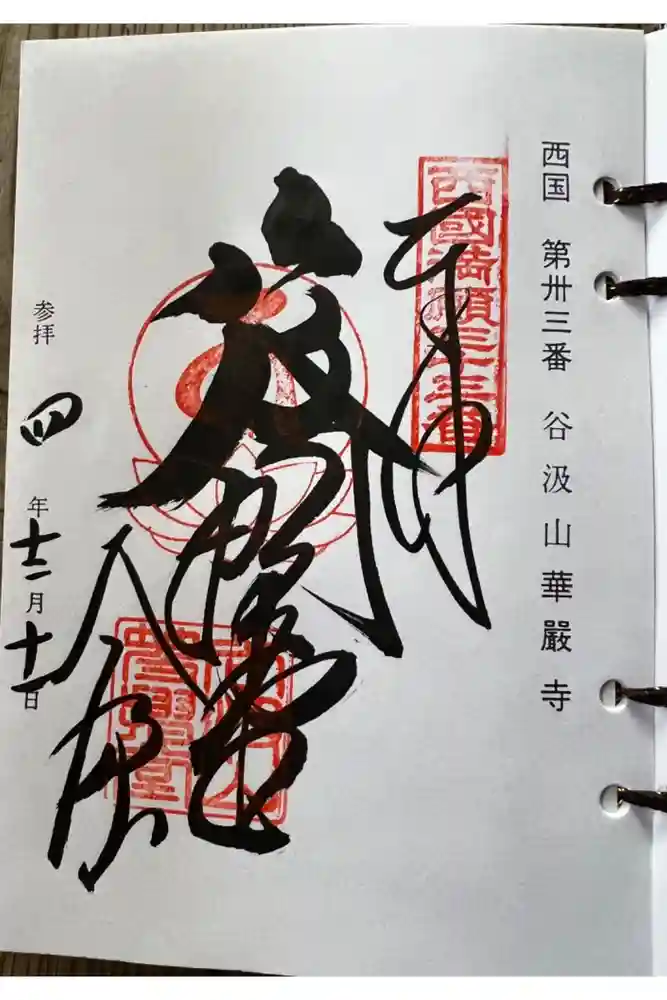 西国 第卅三番 谷汲山華嚴寺
西國満願三十三番
奉拝
笈摺堂
参拝 四年十二月十一日